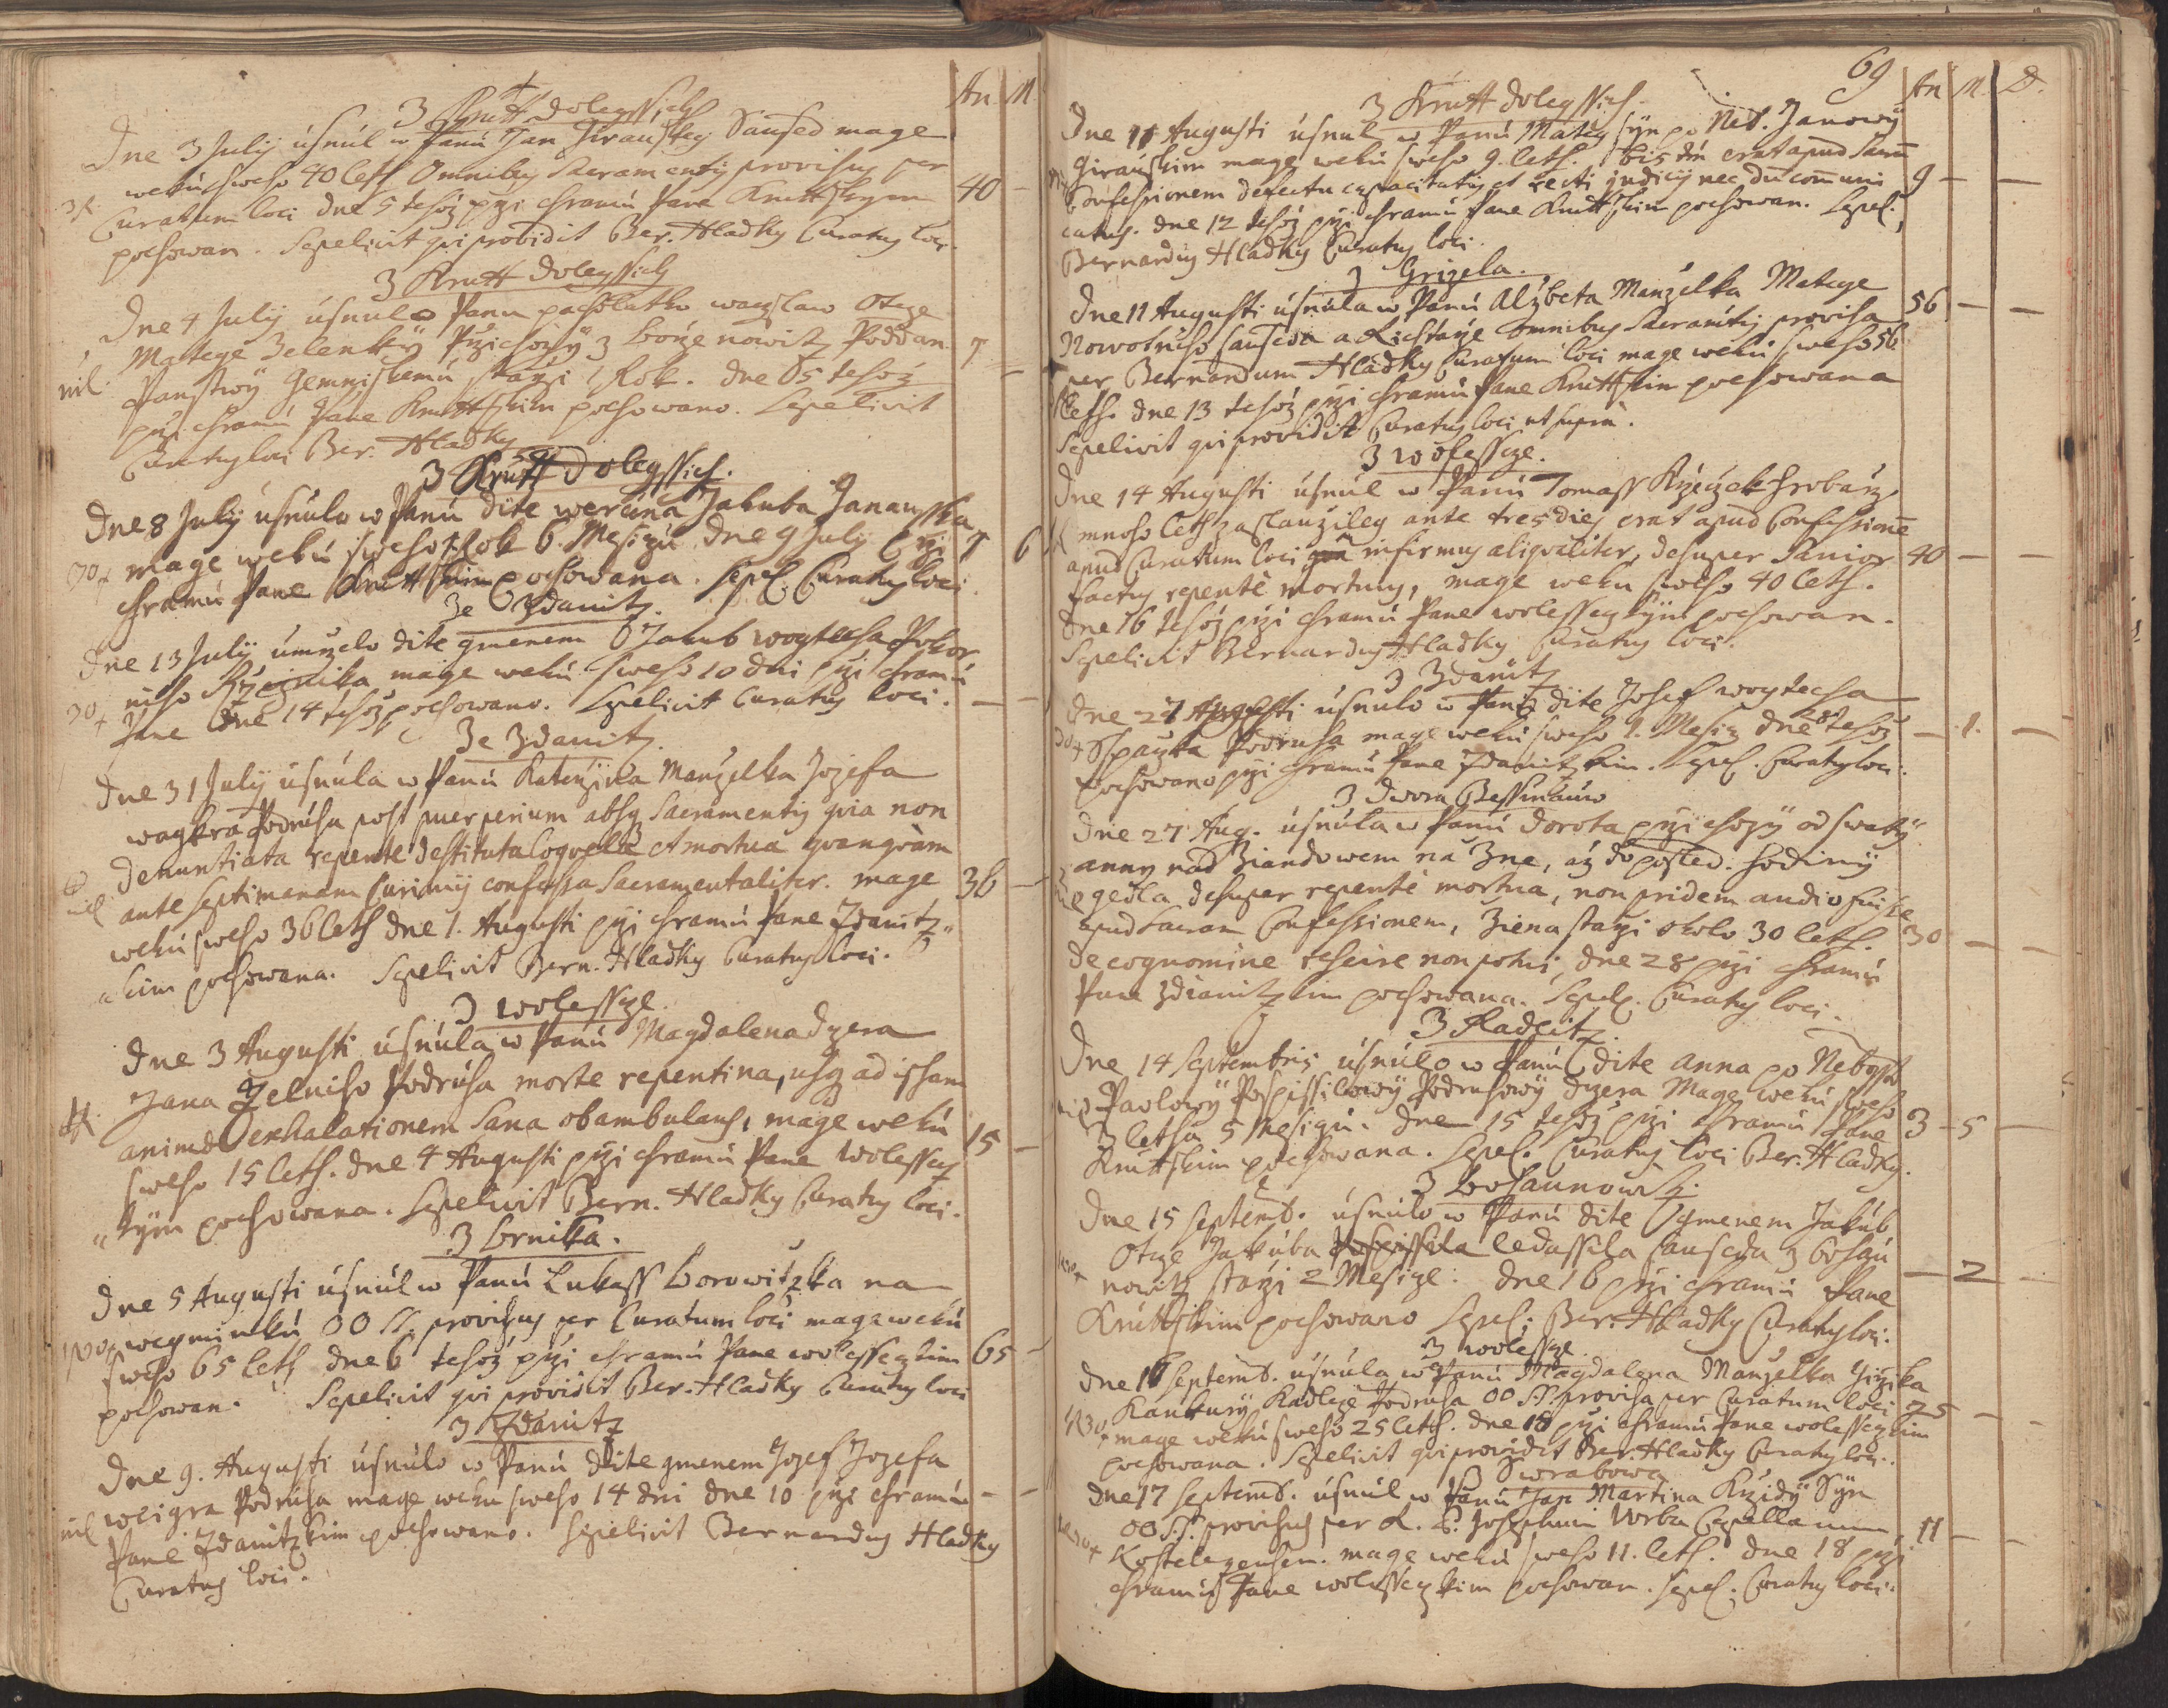 An M
3 Krutt dolegssich
Dne 3 July úsnúl w Panú Jan Jirauskeg Saused mage
wekú sweho 40 leth Omnibus Sacramentis provisus per
Curatum loci dne 5 tehóz przi chramú Pane Kruttskym 40 –
pochowan. Sepelivit qui providit Ber. Hladky Curatus loci.
3 Krutt dolegssich
Dne 4 July úsnulo Panu pacholatko waczslaw Otcze
Matege Zelenký Przichozý z Bořenowitz Poddan.
nil Panstwý Gemniskemú starzi 1 Rok. dne 5 tehoz 1
przi chramú Pane Kruttskim pochowano. Sepelivit
Curatus loci Ber. Hladky
3 Krutt dolegssich.
Dne 8 July úsnúlo w Panú dite werúna Jakuba Janauska
mage wekú sweho 1 Rok 6. Mesizú dne 9 July przi 1 6
chramú Pane Kruttskim pochowana. Sepel. Curatus loci.
Ze Zdanitz.
Dne 13 July úmrzelo dite gmenem Jakub woytecha Pokor
niho Rzeznika mage wekú sweho 10 dni przi chramú
Pane dne 14 tehóz pochowano. Sepelivit Curatus loci. –
Ze Zdanitz.
Dne 31 July úsnúla w Panú Katerzina Manzelka Jozefa
waygra Podrúha post puerperium absq Sacramentis quia non
denuntiata repente destituta loquela et mortua quanquam
nil ante septimanam curimis confessa Sacramentaliter. mage 36 –
wekú sweho 36 leth dne 1. Augusti przi chramú Pane Zdanitz„
„kim pochowana. Sepelivit Bern. Hladky Curatus loci.
3 wolessze.
Dne 3 Augusti úsnúla w Panú Magdalena dzera
Jana Zelniho Podrúha morte repentina, usq ad ipsam
animae exhalationem sana obambulans, mage wekú 15 –
sweho 15 leth. dne 4 Augusti przi chramú Pane wolessecz
„kým pochowana. Sepelivit Bern. Hladky Curatus loci.
3 Brnika.
Dne 5 Augusti úsnúl w Panú Lukass Borowitzka na
weyminkú OO SS. provisus per Curatum loci mage wekú
sweho 65 leth dne 6 tehóz przi chramú Pane wolesseczkim 65 –
pochowan. Sepelivit qui providit Ber. Hladky Curatus loci
3 Zdanitz
Dne 9. Augusti úsnúlo w Panú dite gmenem Jozef Jozefa
weigra Podrúha mage wekú sweho 14 dni dne 10 przi chramú –
nil Pane Zdanitzkim pochowano. Sepelivit Bernardus Hladky
Curatus loci.
69 An M D.
3 Krutt dolegssich.
Dne 11 Augusti úsnul w Panú Mateg syn po Neb. Janowý
Girauskim mage wekú sweho 9. leth. bis dm erat apud sacram
Confessionem defectu capacitatis et recti judicii nec du communi 9 –
catus. dne 12 tehóz przi chramú Pane Kruttskim pochowan. Sepel.
Bernardus Hladky Curatus loci.
3 Grizela.
Dne 11 Augusti úsnúla w Panú Alzbeta Manzelka Matege 56 –
Nowotniho Sauseda a Richtarze Omnibus Sacramtis provisa
per Bernardum Hladky Curatum loci mage wekú sweho 56
leth. dne 13 tehóz przi chramú Pane Kruttskim pochowana
Sepelivit qui providit Curatus loci ut supra.
3 wolessze.
Dne 14 Augusti úsnúl w Panú Tomass Krzeczek Hrobarz
mnoho leth zaslauzileg ante tres dies erat apud Confessione
apud Curatum loci infirmus aliqualiter, desuper sanior 40 –
factus repente mortuus, mage wekú sweho 40 leth.
dne 16 tehóz przi chramú Pane wolessezkým pochowan.
Sepelivit Bernardus Hladky Curatus loci.
3 Zdanitz
Dne 27 Augusti úsnulo w Panú dite Josef woytecha
Spaczka Podruha mage wekú sweho 1. Mesiz dne 28 tehóz – 1. –
pochowano przi chramú Pane Zdanitzkim. Sepel. Curatus loci.
3 Dwora Bessinauw
Dne 27 Aug. úsnúla w Panú Dorota przichozý od swatý
anny nad Ziandowem na Zne, áz do posled. hodiný
gedla desuper repente mortua, non pridem audio fuisse
apud sacram Confessionem, Ziena starzi okolo 30 leth. 30 –
de cognomine rescire non potui, dne 28 przi chramú
Pane Zdianitzkim pochowana. Sepel. Curatus loci.
3 Radlitz.
Dne 14 Septembris úsnúlo w Panú dite anna po Nebosst
Pavlowý Pospissilowý Podruhowý dzera Mage wekú sweho
3 letha 5 Mesizú. dne 15 tehóz przi chramú Pane 3 – 5 –
Kruttskim pochowana. Sepel. Curatus loci Ber. Hladky.
3 Bohaunowitz.
Dne 15 Septemb. úsnúlo w Panú dite gmenem Jakúb
Otcze Jakúba Pospissila ledassila sauseda z bohaú
nowitz starzi 2 Mesize. dne 16 przi chramú Pane – 2 –
Kruttskim pochowano Sepel. Ber. Hladky Curatus loci.
3 wolessze
Dne 16 Septemb. úsnúla w Panú Magdalena Manzelka Girzika
Kankury Kadlcze Podruha OO SS. provisa per Curatum loci 25 –
mage wekú sweho 25 leth. dne 18 przi chramú Pane wolesseczkim
pochowana. Sepelivit qui providit Ber. Hladky Curatus loci.
3 Swrabowa
Dne 17 Septemb. úsnúl w Panú Jan Martina Krzidý Sýn
OO SS. provisus per R. P. Josephum Vorba Capellanum 11 –
Kostelezensem. mage wekú sweho 11. leth. dne 18 przi
chramú Pane wolesseczkim pochowan. Sepel. Curatus loci.